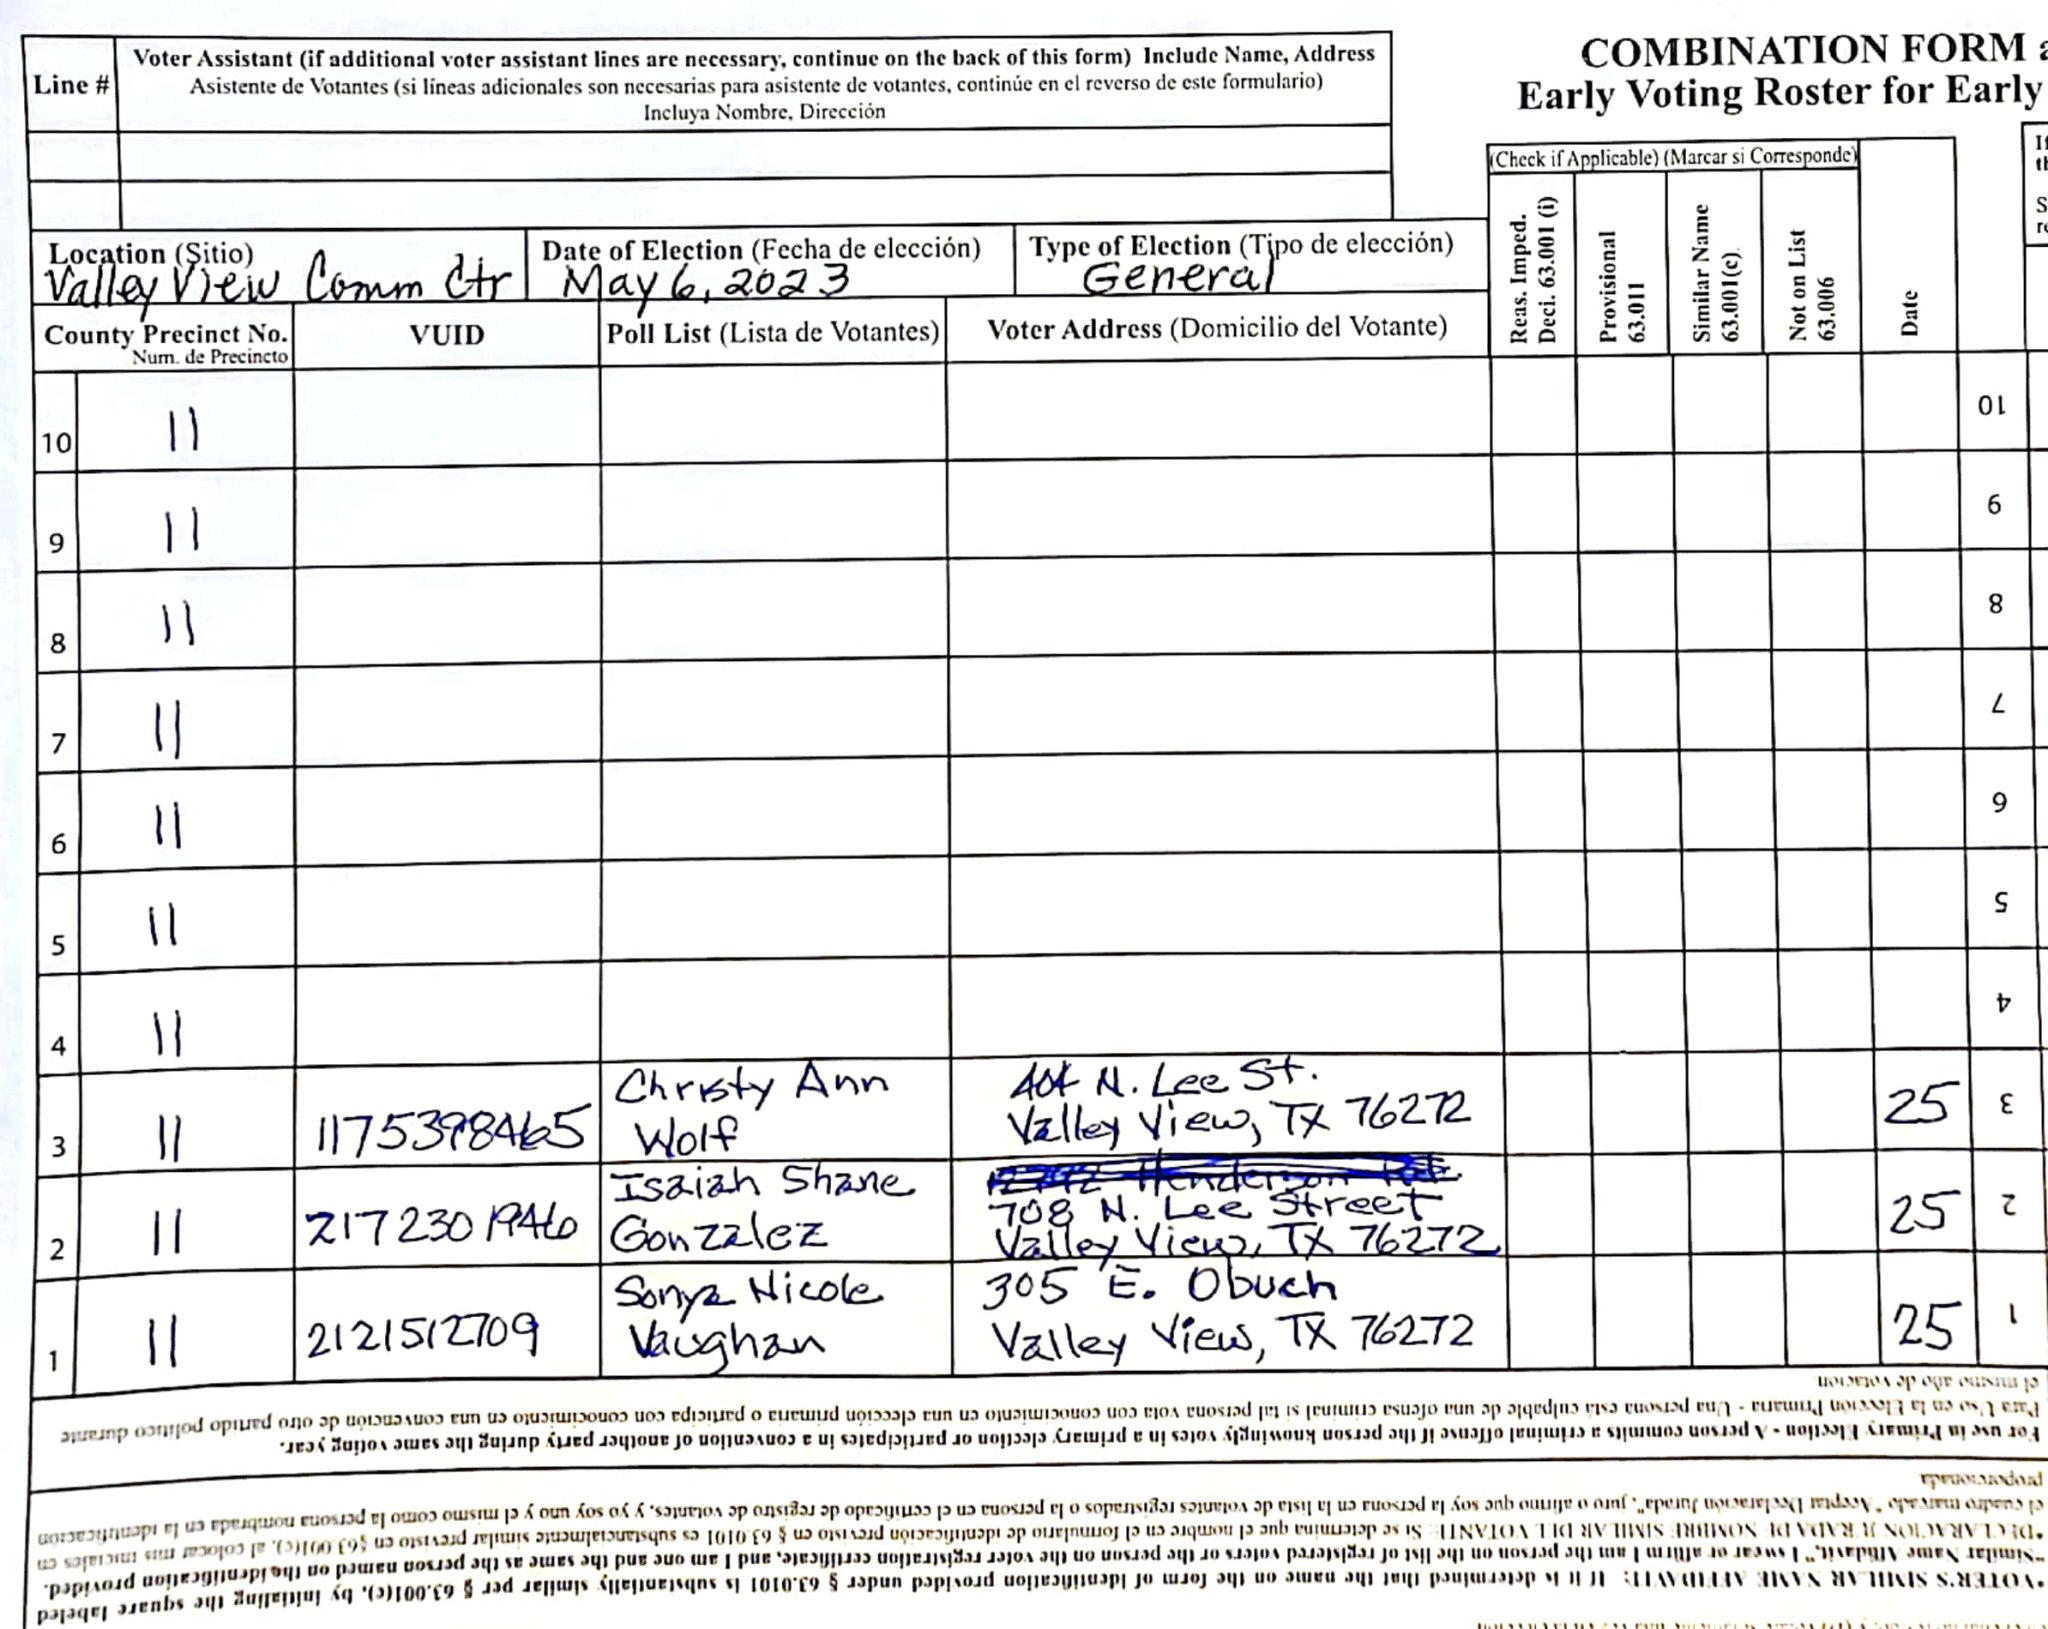 Line #
Voter Assistant (if additional voter assistant lines are necessary, continue on the back of this form) Include Name, Address
Asistente de Votantes (si líneas adicionales son necesarias para asistente de votantes, continúe en el reverso de este formulario)
Incluya Nombre, Dirección
COMBINATION FORM
Early Voting Roster for Early
(Check if Applicable) (Marcar si Corresponde)
Reas. Imped.
Decl. 63.001 (i)
Provisional
63.011
Similar Name
63.001(c)
Not on List
63.006
Date
Location (Sitio)
Valley View Comm Ctr
Date of Election (Fecha de elección)
May 6, 2023
Type of Election (Tipo de elección)
General
County Precinct No.
Num. de Precincto
VUID
Poll List (Lista de Votantes)
Voter Address (Domicilio del Votante)
10 11 10
9 11 9
8 11 8
7 11 7
6 11 6
5 11 5
4 11 4
3 11 1175398465 Christy Ann 404 N. Lee St. 25 3
Wolf Valley View, TX 76272
2 11 2172301946 Isaiah Shane 708 N. Lee Street 25 2
Gonzalez Valley View, TX 76272
1 11 2121512709 Sonya Nicole 305 E. Obuch 25 1
Vaughan Valley View, TX 76272
*VOTER'S SIMILAR NAME AFFIDAVIT: If it is determined that the name on the form of identification provided under § 63.0101 is substantially similar per § 63.001(c), by initialing the square labeled
"Similar Name Affidavit," I swear or affirm I am the person on the list of registered voters or the person on the voter registration certificate, and I am one and the same as the person named on the identification provided.
*DECLARACIÓN JURADA DE NOMBRE SIMILAR DEL VOTANTE: Si se determina que el nombre en el formulario de identificación previsto en § 63.0101 es substancialmente similar previsto en §63.001(c), al colocar mis iniciales en
el cuadro marcado "Aceptar Declaración Jurada", juro o afirmo que soy la persona en la lista de votantes registrados o la persona en el certificado de registro de votantes, y yo soy uno y el mismo como la persona nombrada en la identificación
proporcionada
For use in Primary Election - A person commits a criminal offense if the person knowingly votes in a primary election or participates in a convention of another party during the same voting year.
Para Uso en la Elección Primaria - Una persona está culpable de una ofensa criminal si tal persona vota con conocimiento en una elección primaria o participa con conocimiento en una convención de otro partido político durante
el mismo año de votación.